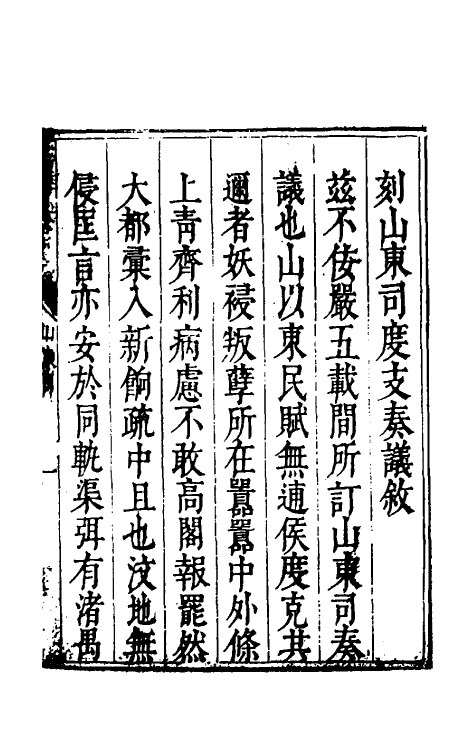 刻山東司度支奏議敘
茲不佞嚴五載間所訂山東司奏
議也山以東民賦無逋侯度克共
邇者妖祲叛孽所在囂囂中外條
上青齊利病慮不敢高閣報罷然
大都彙入新餉疏中且也汶地無
侵匡言亦安於同軌渠弭有渚禺